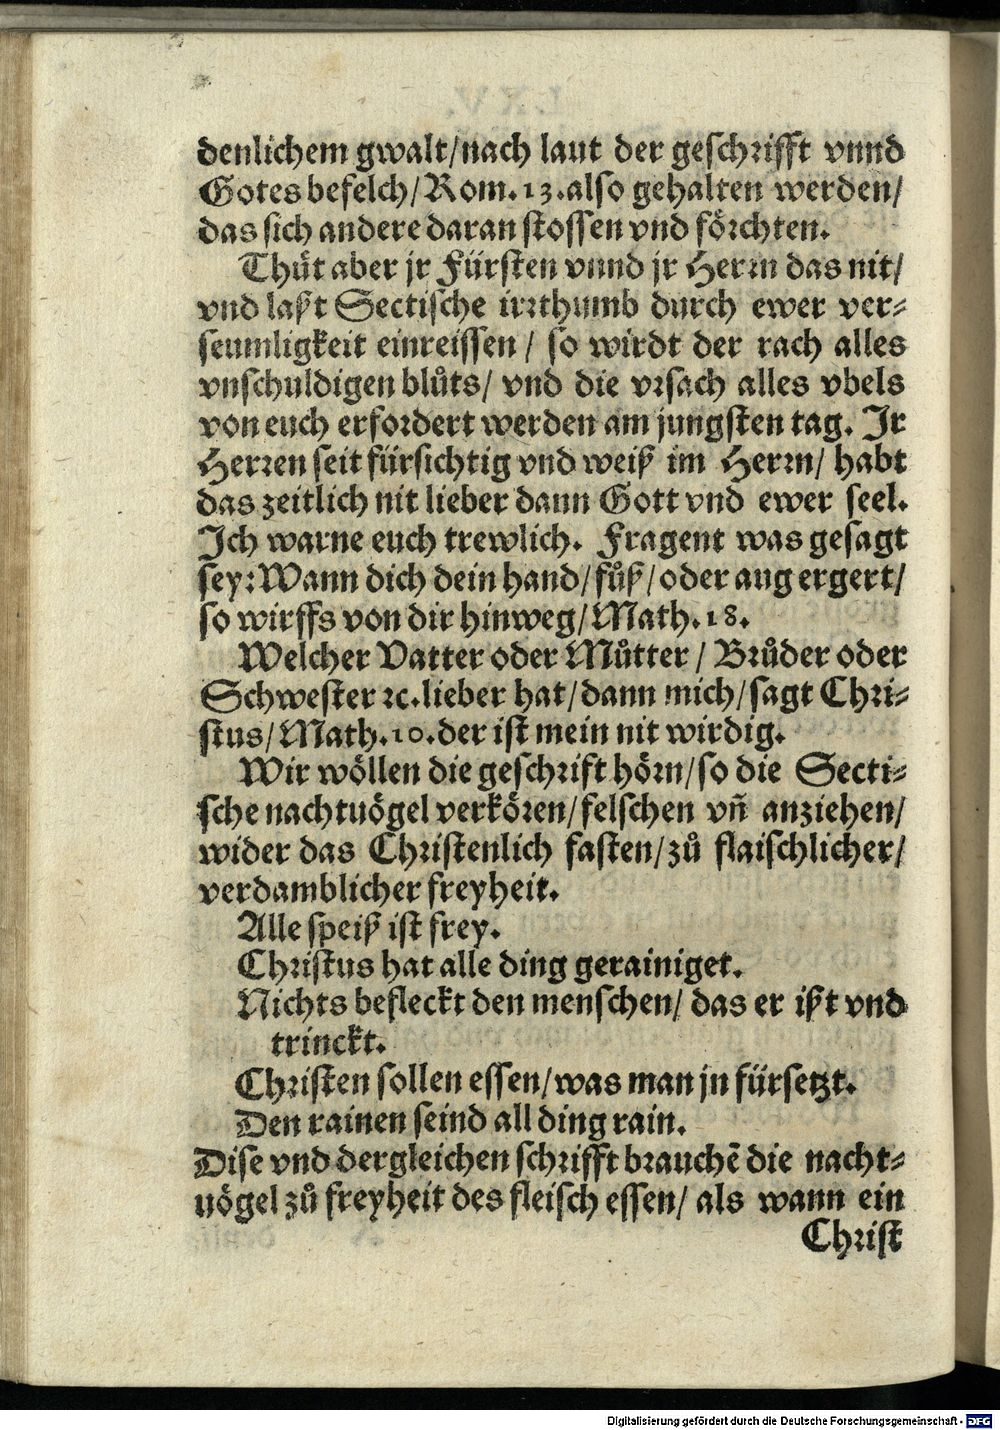 denlichem gwalt/nach laut der geschrifft vnnd
Gotes befelch/Rom.13.also gehalten werden/
das sich andere daran stossen vnd förchten.
Thůt aber jr Fürsten vnnd jr Herrn das nit/
vnd laßt Sectische irrthumb durch ewer ver-
seumligkeit einreissen / so wirdt der rach alles
vnschuldigen blůts/ vnd die vrsach alles vbels
von euch erfordert werden am jungsten tag. Jr
Herren seit fürsichtig vnd weiß im Herrn/ habt
das zeitlich nit lieber dann Gott vnd ewer seel.
Ich warne euch trewlich. Fragent was gesagt
sey: Wann dich dein hand/fůß/oder aug ergert/
so wirffs von dir hinweg/Math.18.
Welcher Vatter oder Můtter / Brůder oder
Schwester ꝛc.lieber hat/dann mich/sagt Chri-
stus/Math.10.der ist mein nit wirdig.
Wir wöllen die geschrift hörn/so die Secti-
sche nachtuögel verkören/felschen vñ anziehen/
wider das Christenlich fasten/zů flaischlicher/
verdamblicher freyheit.
Alle speiß ist frey.
Christus hat alle ding gerainiget.
Nichts befleckt den menschen/ das er ißt vnd
trinckt.
Christen sollen essen/was man jn fürsetzt.
Den rainen seind all ding rain.
Dise vnd dergleichen schrifft brauchē die nacht-
uögel zů freyheit des fleisch essen/ als wann ein
Christ
Digitalisierung gefördert durch die Deutsche Forschungsgemeinschaft - DFG